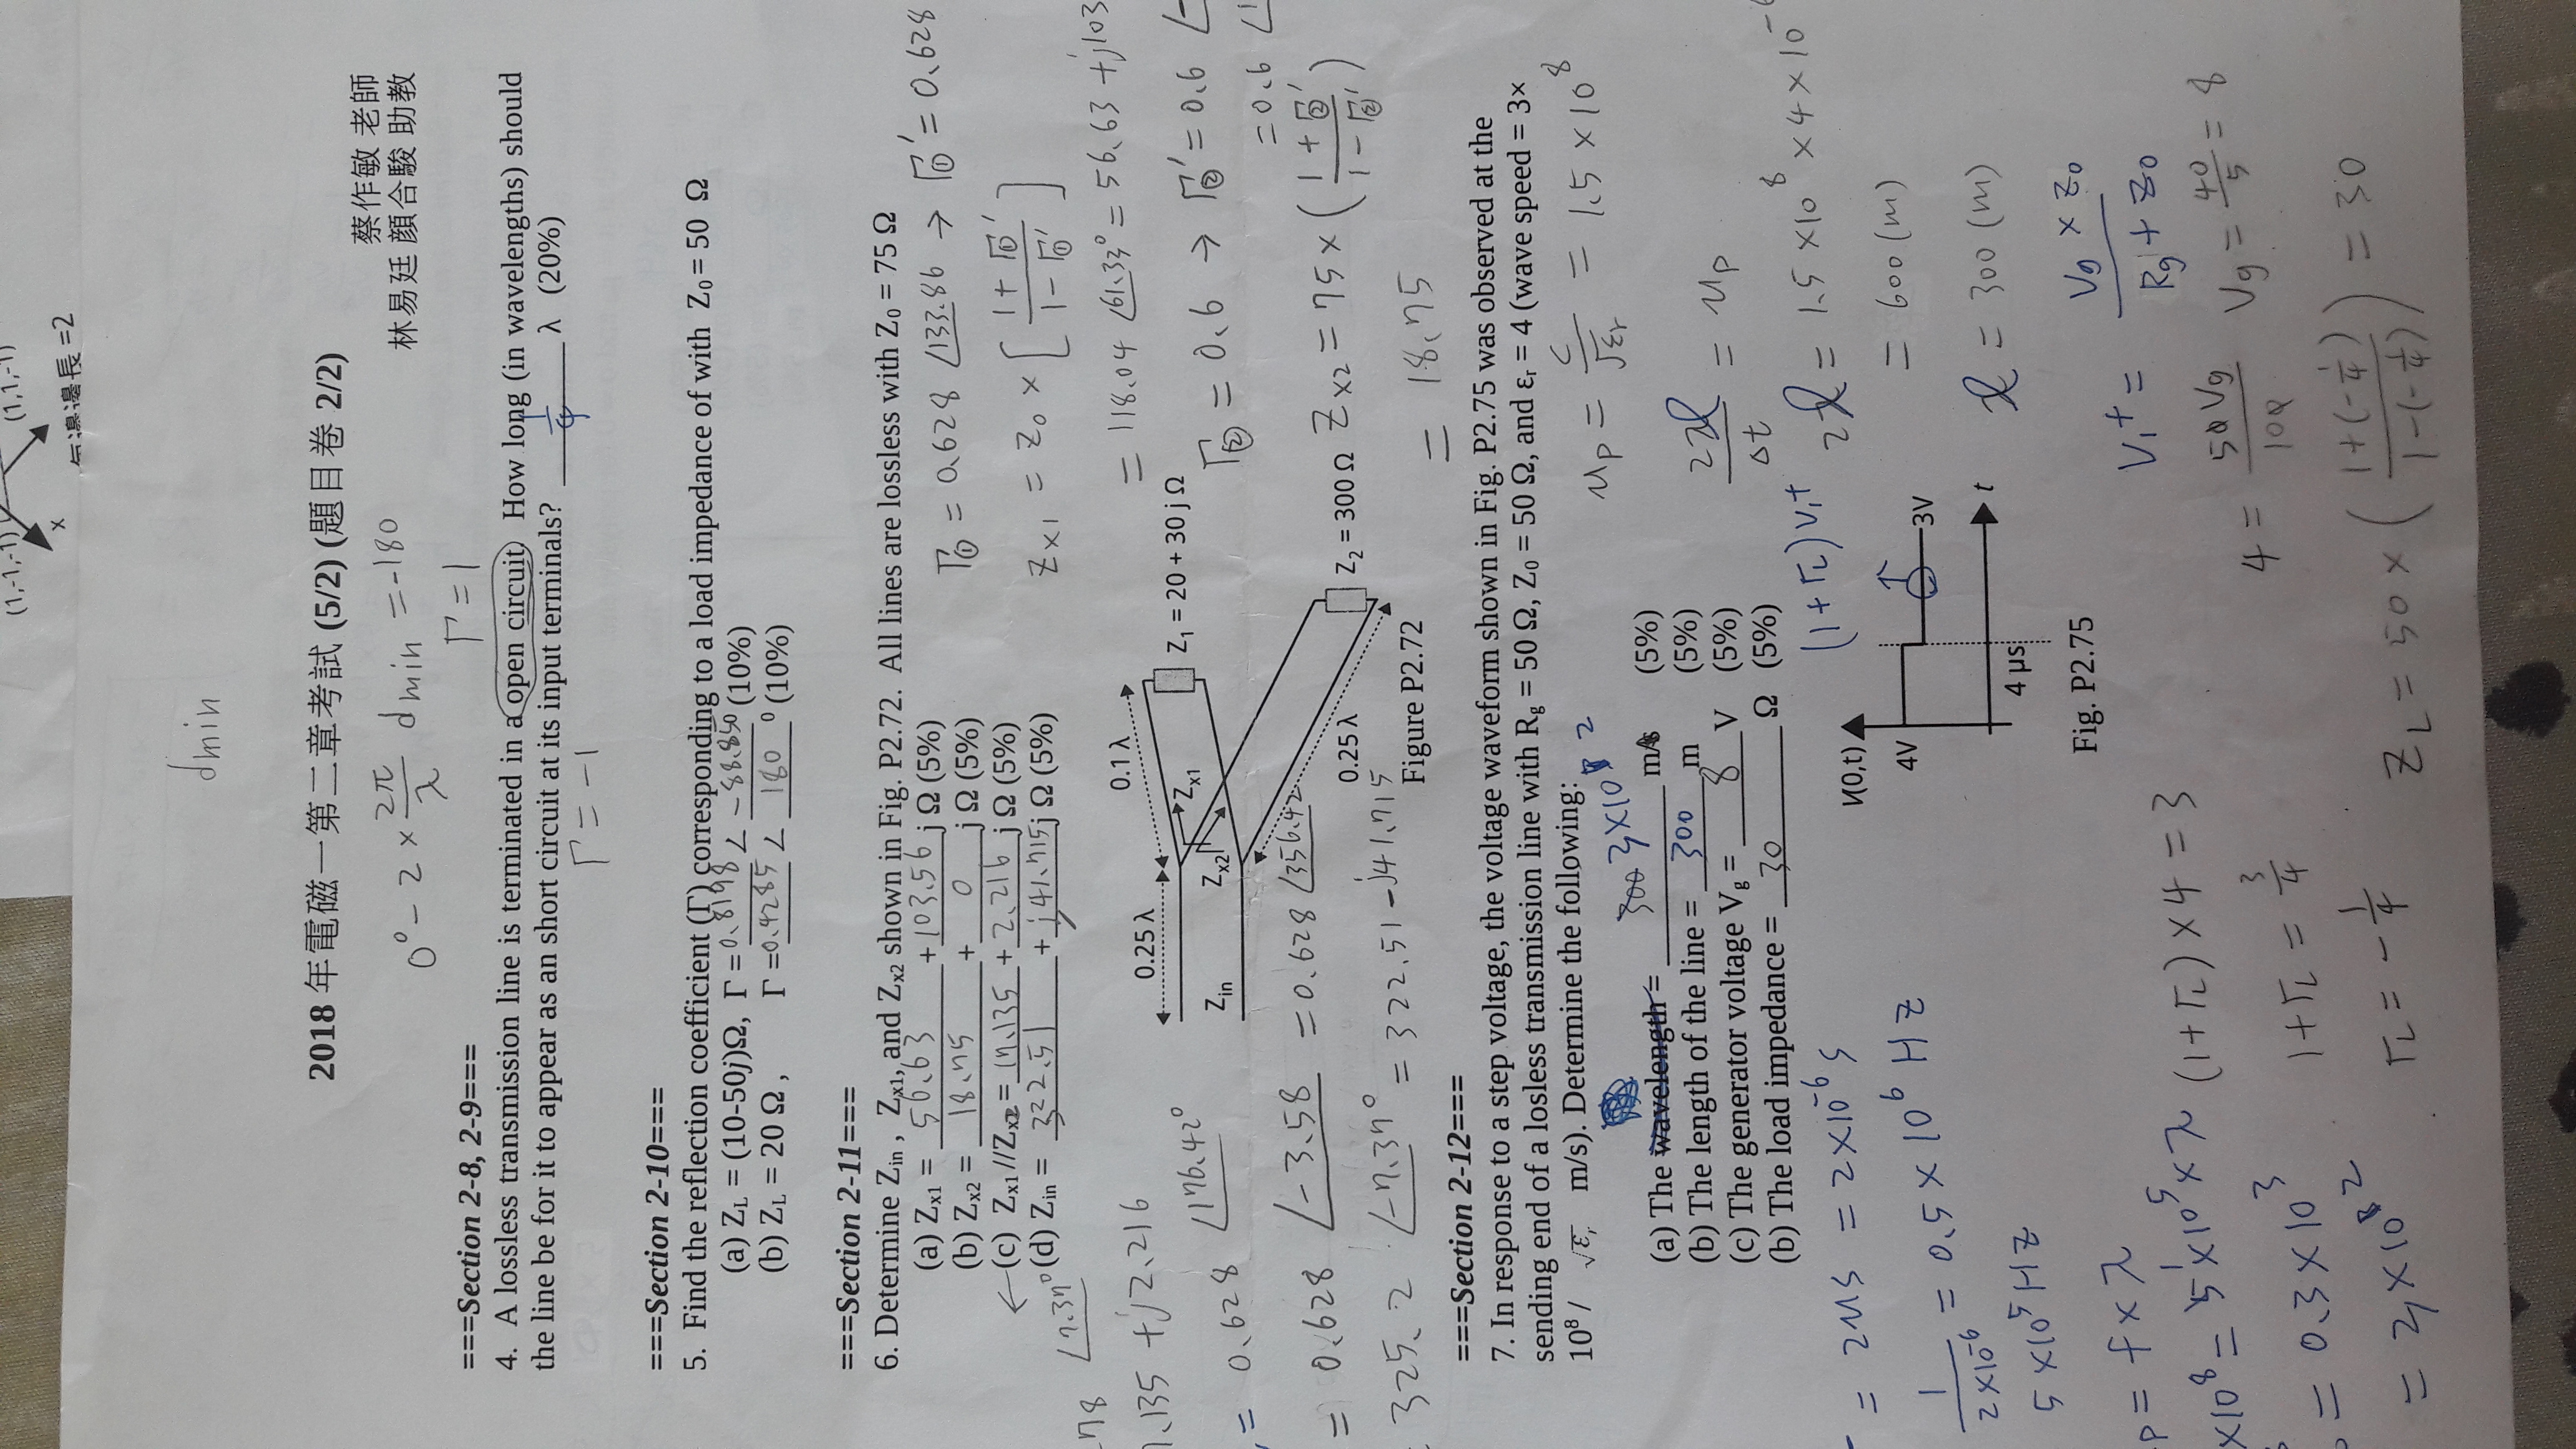 (1,-1,-1)
(1,1,-1)
x
每邊邊長 =2
dmin
2018 年電磁一第二章考試 (5/2) (題目卷 2/2)
蔡作敏 老師
林易廷 顏合駿 助教
0° - 2 × 2π/λ dmin = -180
Γ = 1
===Section 2-8, 2-9===
4. A lossless transmission line is terminated in a open circuit. How long (in wavelengths) should
the line be for it to appear as an short circuit at its input terminals? 1/4 λ (20%)
Γ = -1
===Section 2-10===
5. Find the reflection coefficient (Γ) corresponding to a load impedance of with Z0 = 50 Ω
(a) ZL = (10-50j)Ω, Γ = 0.8198 ∠ -88.85° (10%)
(b) ZL = 20 Ω , Γ = 0.4285 ∠ 180 ° (10%)
===Section 2-11===
6. Determine Zin , Zx1, and Zx2 shown in Fig. P2.72. All lines are lossless with Z0 = 75 Ω
(a) Zx1 = 56.63 + 103.56 j Ω (5%)
(b) Zx2 = 18.75 + 0 j Ω (5%)
←(c) Zx1//Zx2 = 17.135 + 2.216 j Ω (5%)
(d) Zin = 322.51 + j41.715 j Ω (5%)
Γ① = 0.628 ∠133.86 → Γ①' = 0.628
Zx1 = Z0 × [ (1 + Γ①') / (1 - Γ①') ]
= 118.04 ∠61.33° = 56.63 + j103
78 ∠7.37°
.135 + j2.216
= 0.628 ∠176.42°
= 0.628 ∠-3.58 = 0.628 ∠356.42
325.2 ∠-7.37° = 322.51 - j41.715
0.25 λ
0.1 λ
Zin
Zx2
Zx1
Z1 = 20 + 30 j Ω
0.25 λ
Z2 = 300 Ω
Γ② = 0.6 → Γ②' = 0.6 ∠-
= 0.6 ∠1
Zx2 = 75 × ( (1 + Γ②') / (1 - Γ②') )
= 18.75
Figure P2.72
===Section 2-12===
7. In response to a step voltage, the voltage waveform shown in Fig. P2.75 was observed at the
sending end of a losless transmission line with Rg = 50 Ω, Z0 = 50 Ω, and εr = 4 (wave speed = 3×
10⁸ / √εr m/s). Determine the following:
(a) The wavelength = 300 3×10² m (5%)
(b) The length of the line = 300 m (5%)
(c) The generator voltage Vg = 8 V (5%)
(b) The load impedance = 30 Ω (5%)
μp = c/√εr = 1.5 × 10⁸
2l/Δt = μp
2l = 1.5 × 10⁸ × 4 × 10⁻⁶
= 600 (m)
l = 300 (m)
= 2μs = 2×10⁻⁶ s
1/(2×10⁻⁶) = 0.5 × 10⁶ Hz
5 × 10⁵ Hz
(1+ΓL)V1⁺
V(0,t)
4V
3V
4 μs
t
Fig. P2.75
p = f × λ
×10⁸ = 5 × 10⁵ × λ
= 0.3 × 10³
= 3 × 10²
(1+ΓL) × 4 = 3
1+ΓL = 3/4
ΓL = -1/4
V1⁺ = (Vg × Z0) / (Rg + Z0)
4 = 50 Vg / 100 Vg = 40/5 = 8
ZL = 50 × ( (1+(-1/4)) / (1-(-1/4)) ) = 30